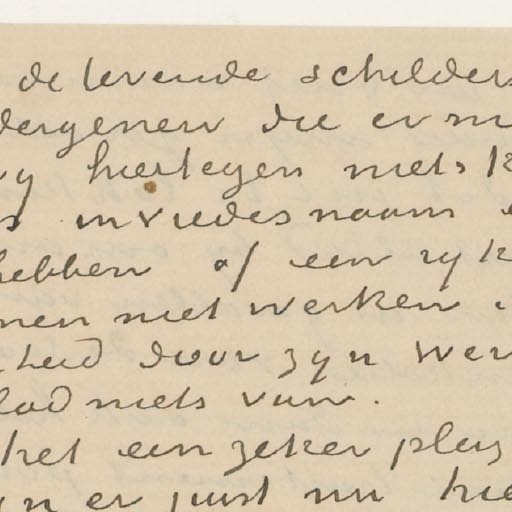 de levende schilders
dergenen die er m
wy hiertegen niets k
s in vredesnaam
hebben of een ryk
nen met werken
heid door zyn wer
lad niets van.
het een zeker pley
yn er juist nu hie